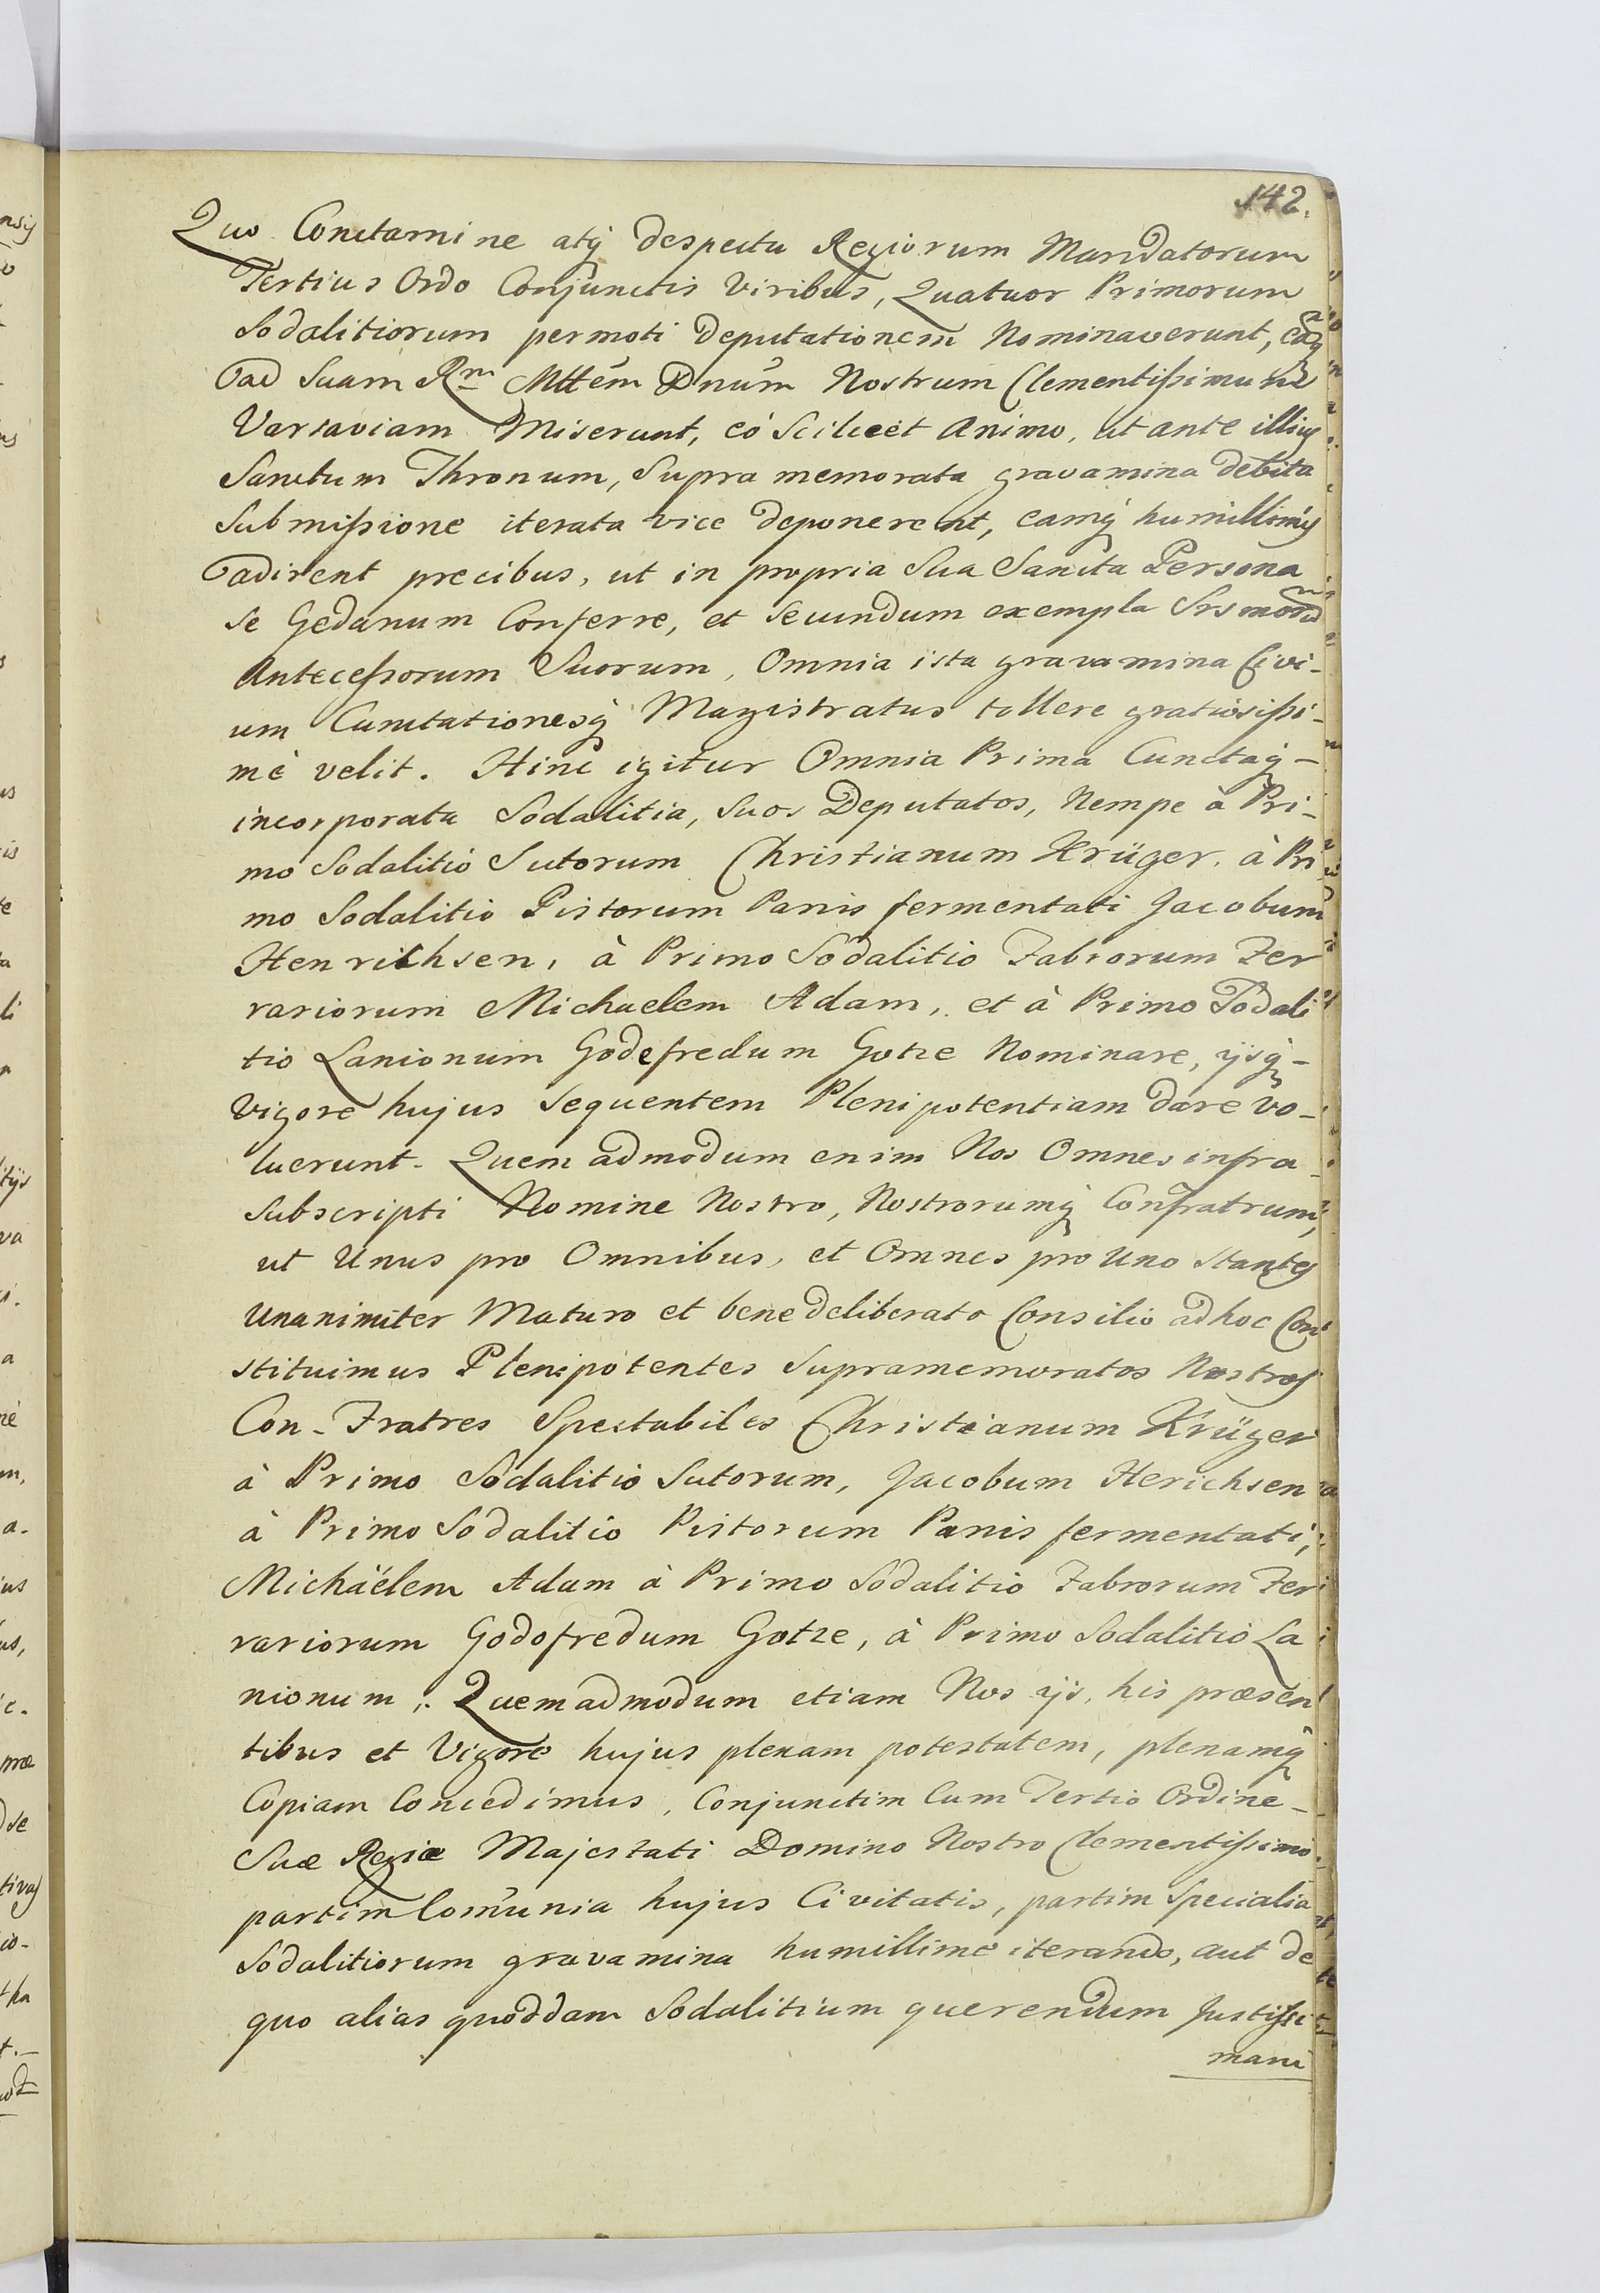 142.
Quo Conctamine atq₃ despectu Regiorum Mandatorum
Tertius Ordo Conjunctis Viribus, Quatuor Primorum
Sodalitiorum permoti Deputationem Nominaverunt, eaq₃
ad Suam Rm Mttem Dnum Nostrum Clementissimum
Varsaviam Miserunt, eó Scilicèt Animo, ut ante illius
Sanctum Thronum, Supra memorata gravamina debita
Submissione iterata vice deponerent, eamq₃ humillimis
adirent precibus, ut in propria Sua Sancta Persona
se Gedanum Conferre, et Secundum exempla
Antecessorum Suorum, Omnia ista gravamina Civi-
um Cunctationesq₃ Magistratus tollere gratiosissi-
mè velit. Hinc igitur Omnia Prima Cunctaq₃-
incorporata Sodalitia, Suos Deputatos, Nempe à Pri-
mo Sodalitio Sutorum Christianum Krüger, à Pri
mo Sodalitio Pistorum Panis fermentati Jacobum
Henrichsen, à Primo Sodalitio Fabrorum Fer
rariorum Michaelem Adam, et à Primo Sodali
tio Lanionum Godefredum Gotze Nominare, ijsq₃-
Vigore hujus Sequentem Plenipotentiam dare vo-
luerunt. Quem admodum enim Nos Omnes infra
Subscripti Nomine Nostro, Nostrorumq₃ Confratrum,
ut Unus pro Omnibus, et Omnes pro Uno Stantes
Unanimiter Maturo et bene deliberato Consilio ad hoc Con
stituimus Plenipotentes Supramemoratos Nostros
Con-Fratres Spectabiles Christianum Krüger
à Primo Sodalitio Sutorum, Jacobum Herichsen
à Primo Sodalitio Pistorum Panis fermentati,
Michäelem Adam à Primo Sodalitio Fabrorum Fer
rariorum Godofredum Gotze, à Primo Sodalitio La
nionum; Quemadmodum etiam Nos ijs, his præsen
tibus et Vigore hujus plenam potestatem, plenamq₃
Copiam Concedimus, Conjunctim Cum Tertio Ordine-
Suæ Regiæ Majestati Domino Nostro Clementissimo
partim Com̄unia hujus Civitatis, partim Specialia
Sodalitiorum gravamina humillime iterando, aut de
quo alias quoddam Sodalitium querendum Justissi
mam